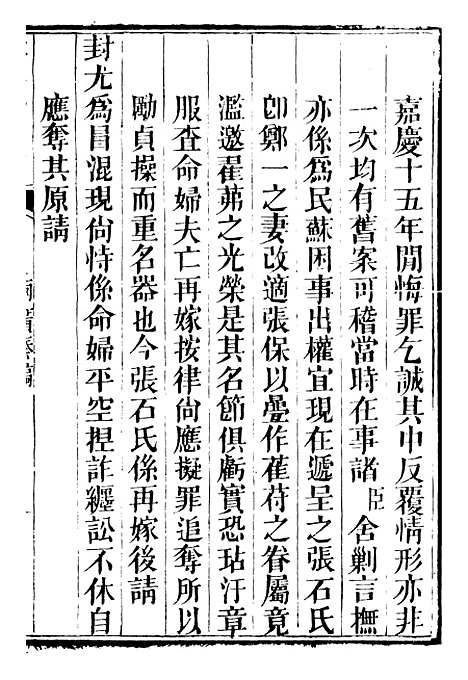 嘉慶十五年閒悔罪乞誠其中反覆情形亦非
一次均有舊案可稽當時在事諸臣舍剿言撫
亦係為民蘇困事出權宜現在遞呈之張石氏
卽鄭一之妻改適張保以疊作萑苻之眷屬竟
濫邀翟茀之光榮是其名節俱虧實恐玷汙章
服査命婦夫亡再嫁按律尙應擬罪追奪所以
勵貞操而重名器也今張石氏係再嫁後請
封尤為冒混現尙恃係命婦平空捏詐纏訟不休自
應奪其原請